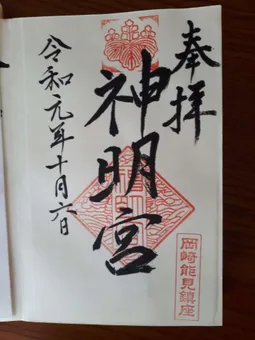 奉拝
神明宮
令和元年十月六日
岡崎能見鎮座